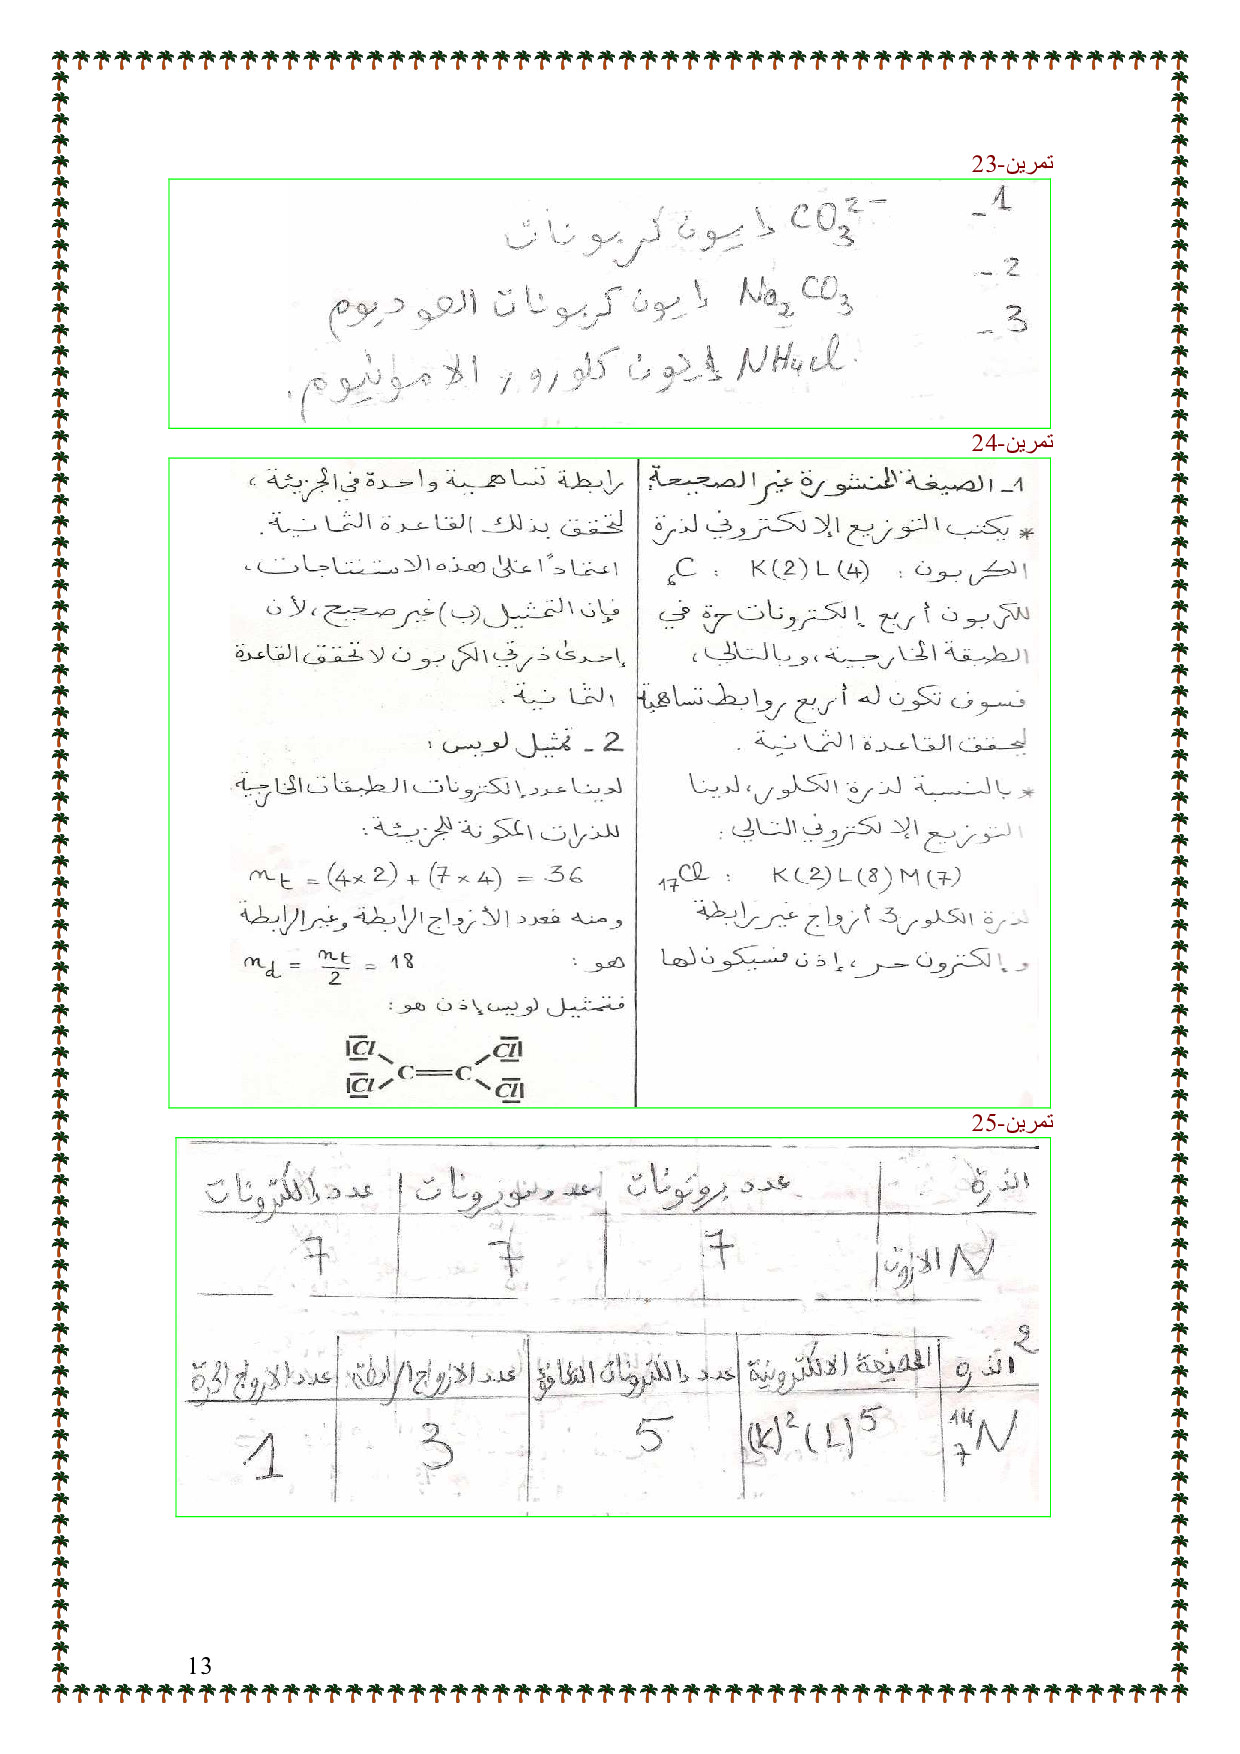 تمرين-23
1-
CO₃²⁻ إيون كربونات
2-
Na₂CO₃ إيون كربونات الصوديوم
3-
NH₄Cl إيون كلورور الامونيوم.
تمرين-24
1- الصيغة المنشورة غير الصحيحة:
* يكتب التوزيع الإلكتروني لذرة
الكربون : ₆C : K(2) L(4)
للكربون أربع إلكترونات حرة في
الطبقة الخارجية، وبالتالي،
فسوف تكون له أربع روابط تساهمية
لتحقق القاعدة الثمانية .
* بالنسبة لذرة الكلور، لدينا
التوزيع الإلكتروني التالي :
₁₇Cl : K(2) L(8) M(7)
لذرة الكلور 3 أزواج غير رابطة
و إلكترون حر، إذن فسيكون لها
رابطة تساهمية واحدة في الجزيئة ،
لتحقق بذلك القاعدة الثمانية .
اعتمادًا على هذه الاستنتاجات ،
فإن التمثيل (ب) غير صحيح، لأن
إحدى ذرتي الكربون لا تحقق القاعدة
الثمانية .
2 - تمثيل لويس :
لدينا عدد إلكترونات الطبقات الخارجية
للذرات المكونة للجزيئة :
nt = (4 × 2) + (7 × 4) = 36
ومنه فعدد الأزواج الرابطة وغير الرابطة
هو : nd = nt/2 = 18
فتمثيل لويس إذن هو :
Cl Cl
C=C
Cl Cl
تمرين-25
الذرة عدد بروتونات عدد نوترونات عدد إلكترونات
N الازوت 7 7 7
2
الذرة الصيغة الالكترونية عدد إلكترونات عدد الازواج الرابطة عدد الازواج الحرة
¹⁴₇N (K)²(L)⁵ 5 3 1
13